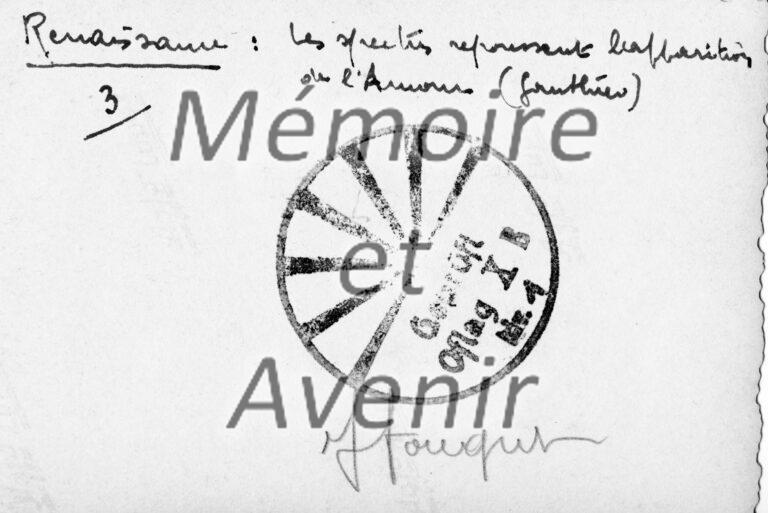 Renaissance : Les spectres repoussent l'apparition
de l'Amour (Gauthier)
3
Mémoire
et
Avenir
Geprüft
Oflag X B
Nr. 1
J Fouquet